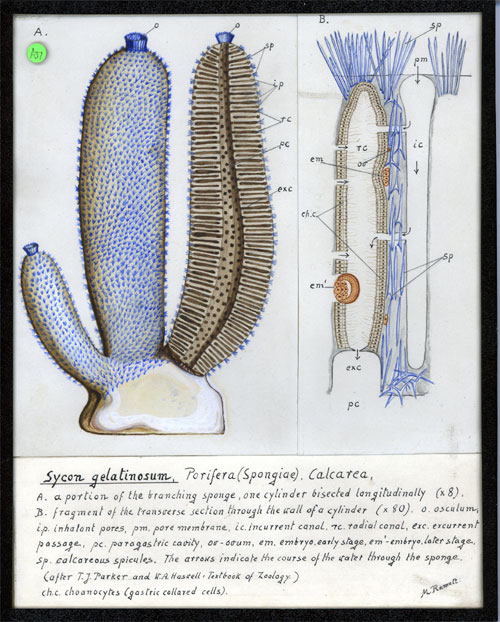 A.
o
o
A37
sp
i.p
rc
pc
exc
B.
sp
pm
rc
ic
em
ov
ch.c
sp
em'
exc
pc
Sycon gelatinosum, Porifera (Spongiae), Calcarea,
A. a portion of the branching sponge, one cylinder bisected longitudinally (x 8).
B. fragment of the transverse section through the wall of a cylinder (x 80). o. osculum,
i.p. inhalant pores, pm. pore membrane, ic. incurrent canal, rc. radial canal, exc. excurrent
passage, pc. paragastric cavity, ov-ovum, em. embryo, early stage, em'-embryo, later stage,
sp. calcareous spicules. The arrows indicate the course of the water through the sponge.
(after T.J. Parker and W.A. Haswell: Textbook of Zoology.)
ch.c. choanocytes (gastric collared cells).